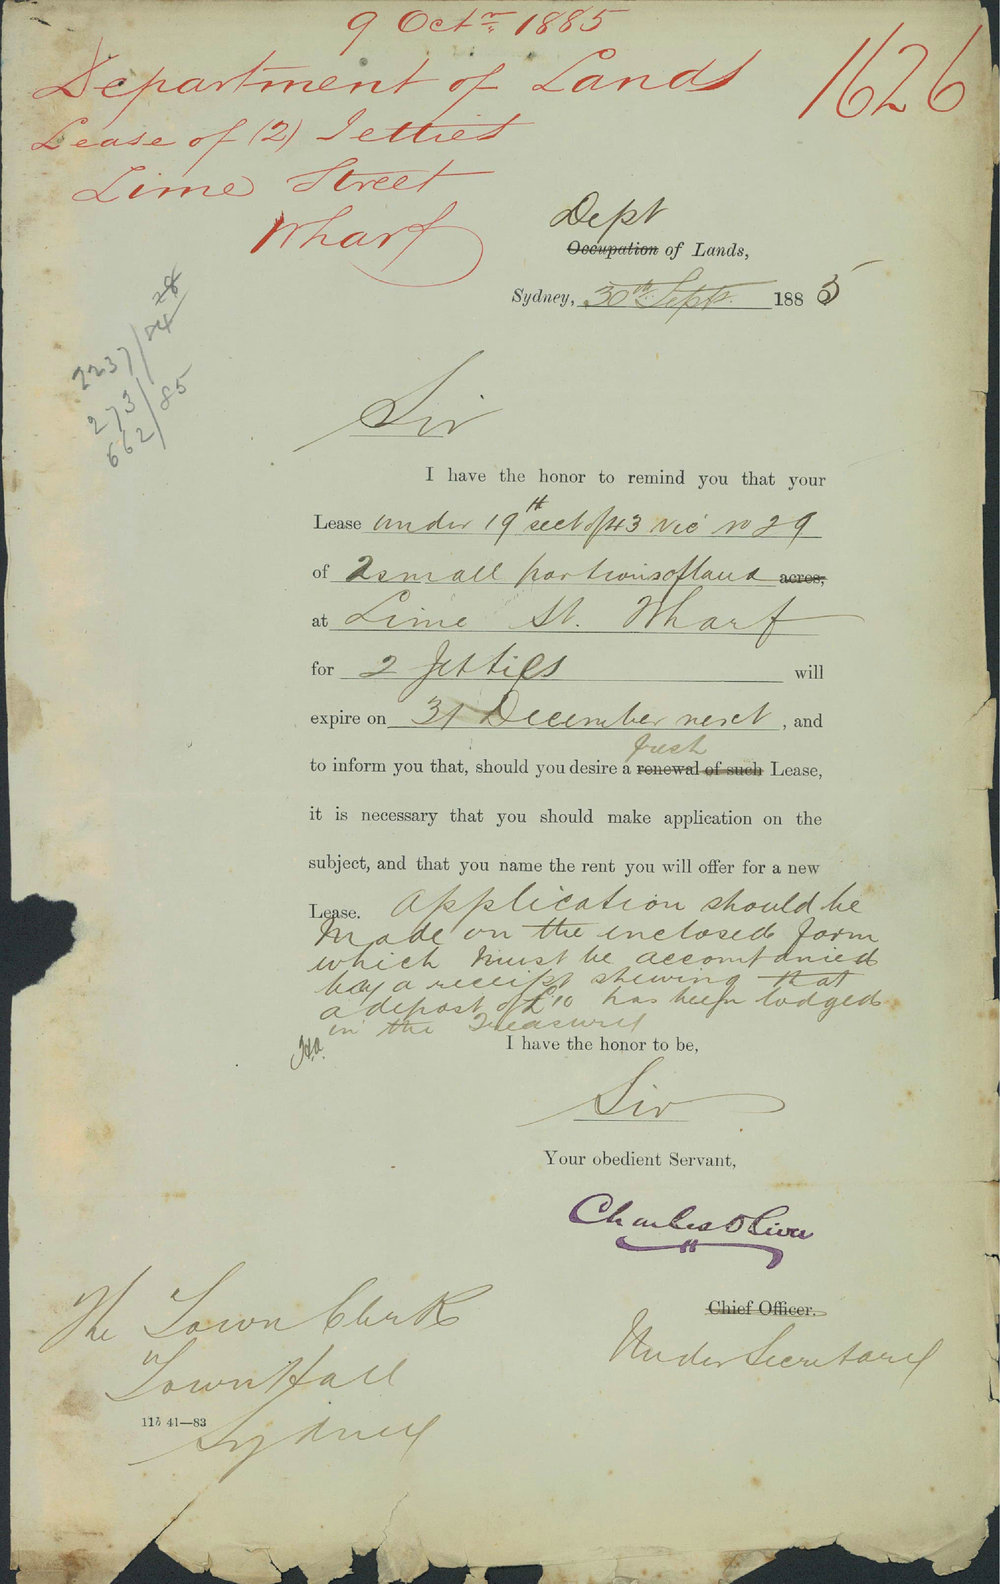 9 Octr 1885
Department of Lands
1626
Lease of (2) Jetties
Lime Street
Wharf
Dept
Occupation of Lands,
Sydney, 30th Sept. 1885
28
2237/84
273/
662/85
Sir
I have the honor to remind you that your
Lease under 19th sect of 43 Vic no 29
of 2 small portions of land acres,
at Lime St. Wharf
for 2 Jetties will
expire on 31 December next, and
fresh
to inform you that, should you desire a renewal of such Lease,
it is necessary that you should make application on the
subject, and that you name the rent you will offer for a new
Lease. Application should be
made on the inclosed form
which must be accompanied
by a receipt shewing that
a deposit of £10 has been lodged
in the Treasury
I have the honor to be,
Sir
Your obedient Servant,
Charles Oliver
Chief Officer.
Under Secretary
The Town Clerk
Town Hall
Sydney
115 41—83